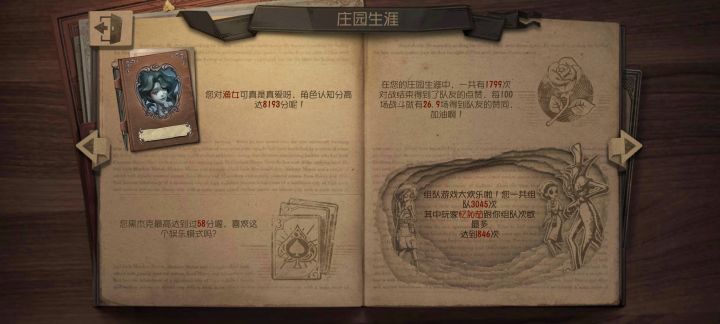 庄园生涯
您对渔女可真是真爱呀，角色认知分高
达8193分呢！
您黑杰克最高达到过58分喔，喜欢这
个娱乐模式吗？
在您的庄园生涯中，一共有1799次
对战结束得到了队友的点赞，每100
场战斗就有26.9场得到队友的赞同，
加油啊！
组队游戏大欢乐啦！您一共组
队3045次
其中玩家忆陀茄跟你组队次数
最多
达到846次